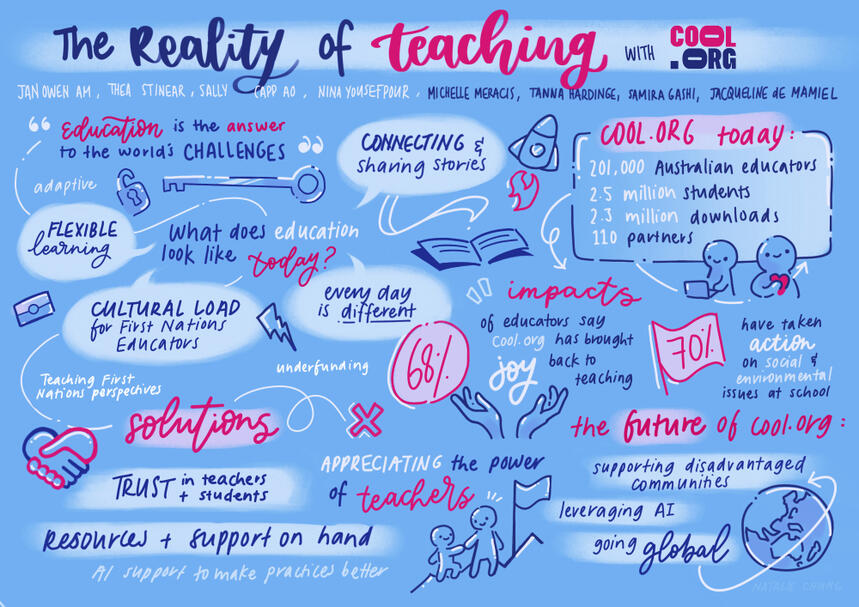 The Reality of teaching WITH COOL.ORG
JAN OWEN AM, THEA STINEAR, SALLY CAPP AO, NINA YOUSEFPOUR, MICHELLE MERACIS, TANNA HARDINGE, SAMIRA GASHI, JACQUELINE de MAMIEL
“ Education is the answer
to the world's CHALLENGES ”
adaptive
CONNECTING &
sharing stories
COOL.ORG today:
201,000 Australian educators
2.5 million students
2.3 million downloads
110 partners
FLEXIBLE
learning
What does education
look like today?
CULTURAL LOAD
for First Nations
Educators
every day
is different
Teaching First
Nations perspectives
underfunding
impacts
68%
of educators say
Cool.org has brought
joy back to
teaching
70%
have taken
action
on social &
environmental
issues at school
solutions
TRUST in teachers
+ students
Resources + support on hand
AI support to make practices better
APPRECIATING the power
of teachers
the future of cool.org:
supporting disadvantaged
communities
leveraging AI
going global
NATALIE CHUNG